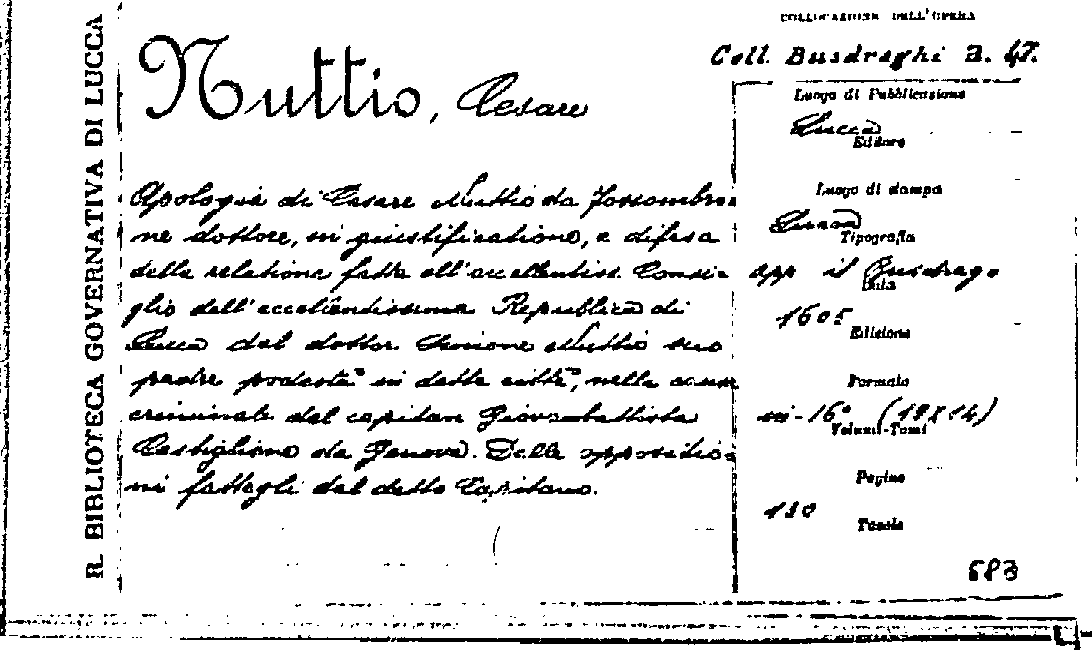 R. BIBLIOTECA GOVERNATIVA DI LUCCA
Nuttio, Cesare
Apologia di Cesare Nuttio da Fossombro=
ne dottore, in giustificatione, e difesa
della relatione fatta all'eccellentiss. Consi=
glio dell'eccellentissima Republica di
Lucca dal dottor Nuttio suo
padre podestà in detta città, nella causa
criminale del capitan Giovambattista
Castiglione da Genova. Dalle oppositio=
ni fattegli dal detto Capitano.
COLLOCAZIONE DELL'OPERA
Coll. Busdraghi B. 47.
Luogo di Pubblicazione
Lucca
Editore
Luogo di stampa
Lucca
Tipografia
app il Busdrago
Data
1605
Edizione
Formato
in-16° (19X14)
Volumi-Tomi
Pagine
130
Tavole
683